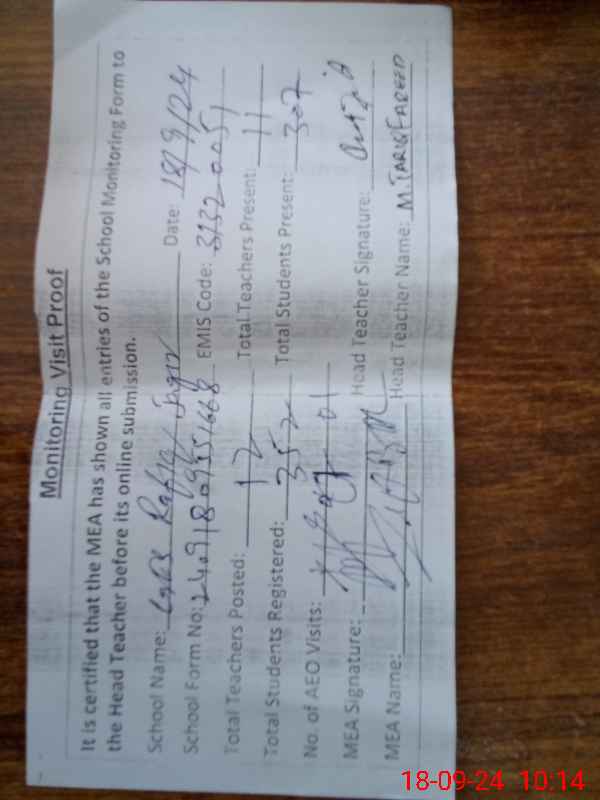 Monitoring Visit Proof
It is certified that the MEA has shown all entries of the School Monitoring Form to
the Head Teacher before its online submission.
School Name: Date: 18/9/24
School Form No: EMIS Code: 31320051
Total Teachers Posted: 12 Total Teachers Present: 11
Total Students Registered: 352 Total Students Present: 307
No. of AEO Visits: 01
MEA Signature: Head Teacher Signature:
MEA Name: Head Teacher Name: M. TARIQ FAREED
18-09-24 10:14